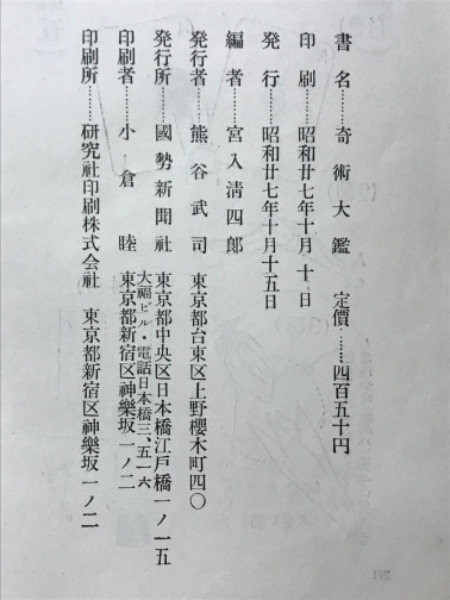 書名………奇術大鑑　定價………四百五十円
印刷………昭和廿七年十月十日
発行………昭和廿七年十月十五日
編者………宮入淸四郎
発行者………熊谷武司　東京都台東区上野櫻木町四〇
発行所………國勢新聞社　東京都中央区日本橋江戸橋一ノ一五
大福ビル・電話日本橋三、五一六
印刷者………小倉睦　東京都新宿区神樂坂一ノ二
印刷所………研究社印刷株式会社　東京都新宿区神樂坂一ノ二